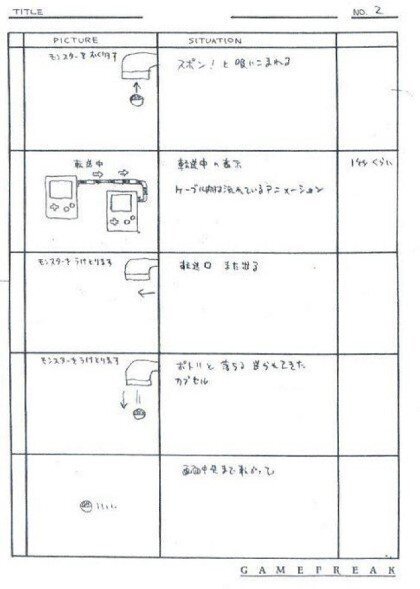 TITLE
NO. 2
PICTURE
SITUATION
モンスターをおくります
スポン！と吸いこまれる
転送中
転送中の表示
1秒くらい
ケーブル内を流れているアニメーション
モンスターをうけとります
転送口 また出る
モンスターをうけとります
ポトリと落ちる 送られてきた
カプセル
画面中央まで
GAMEFREAK